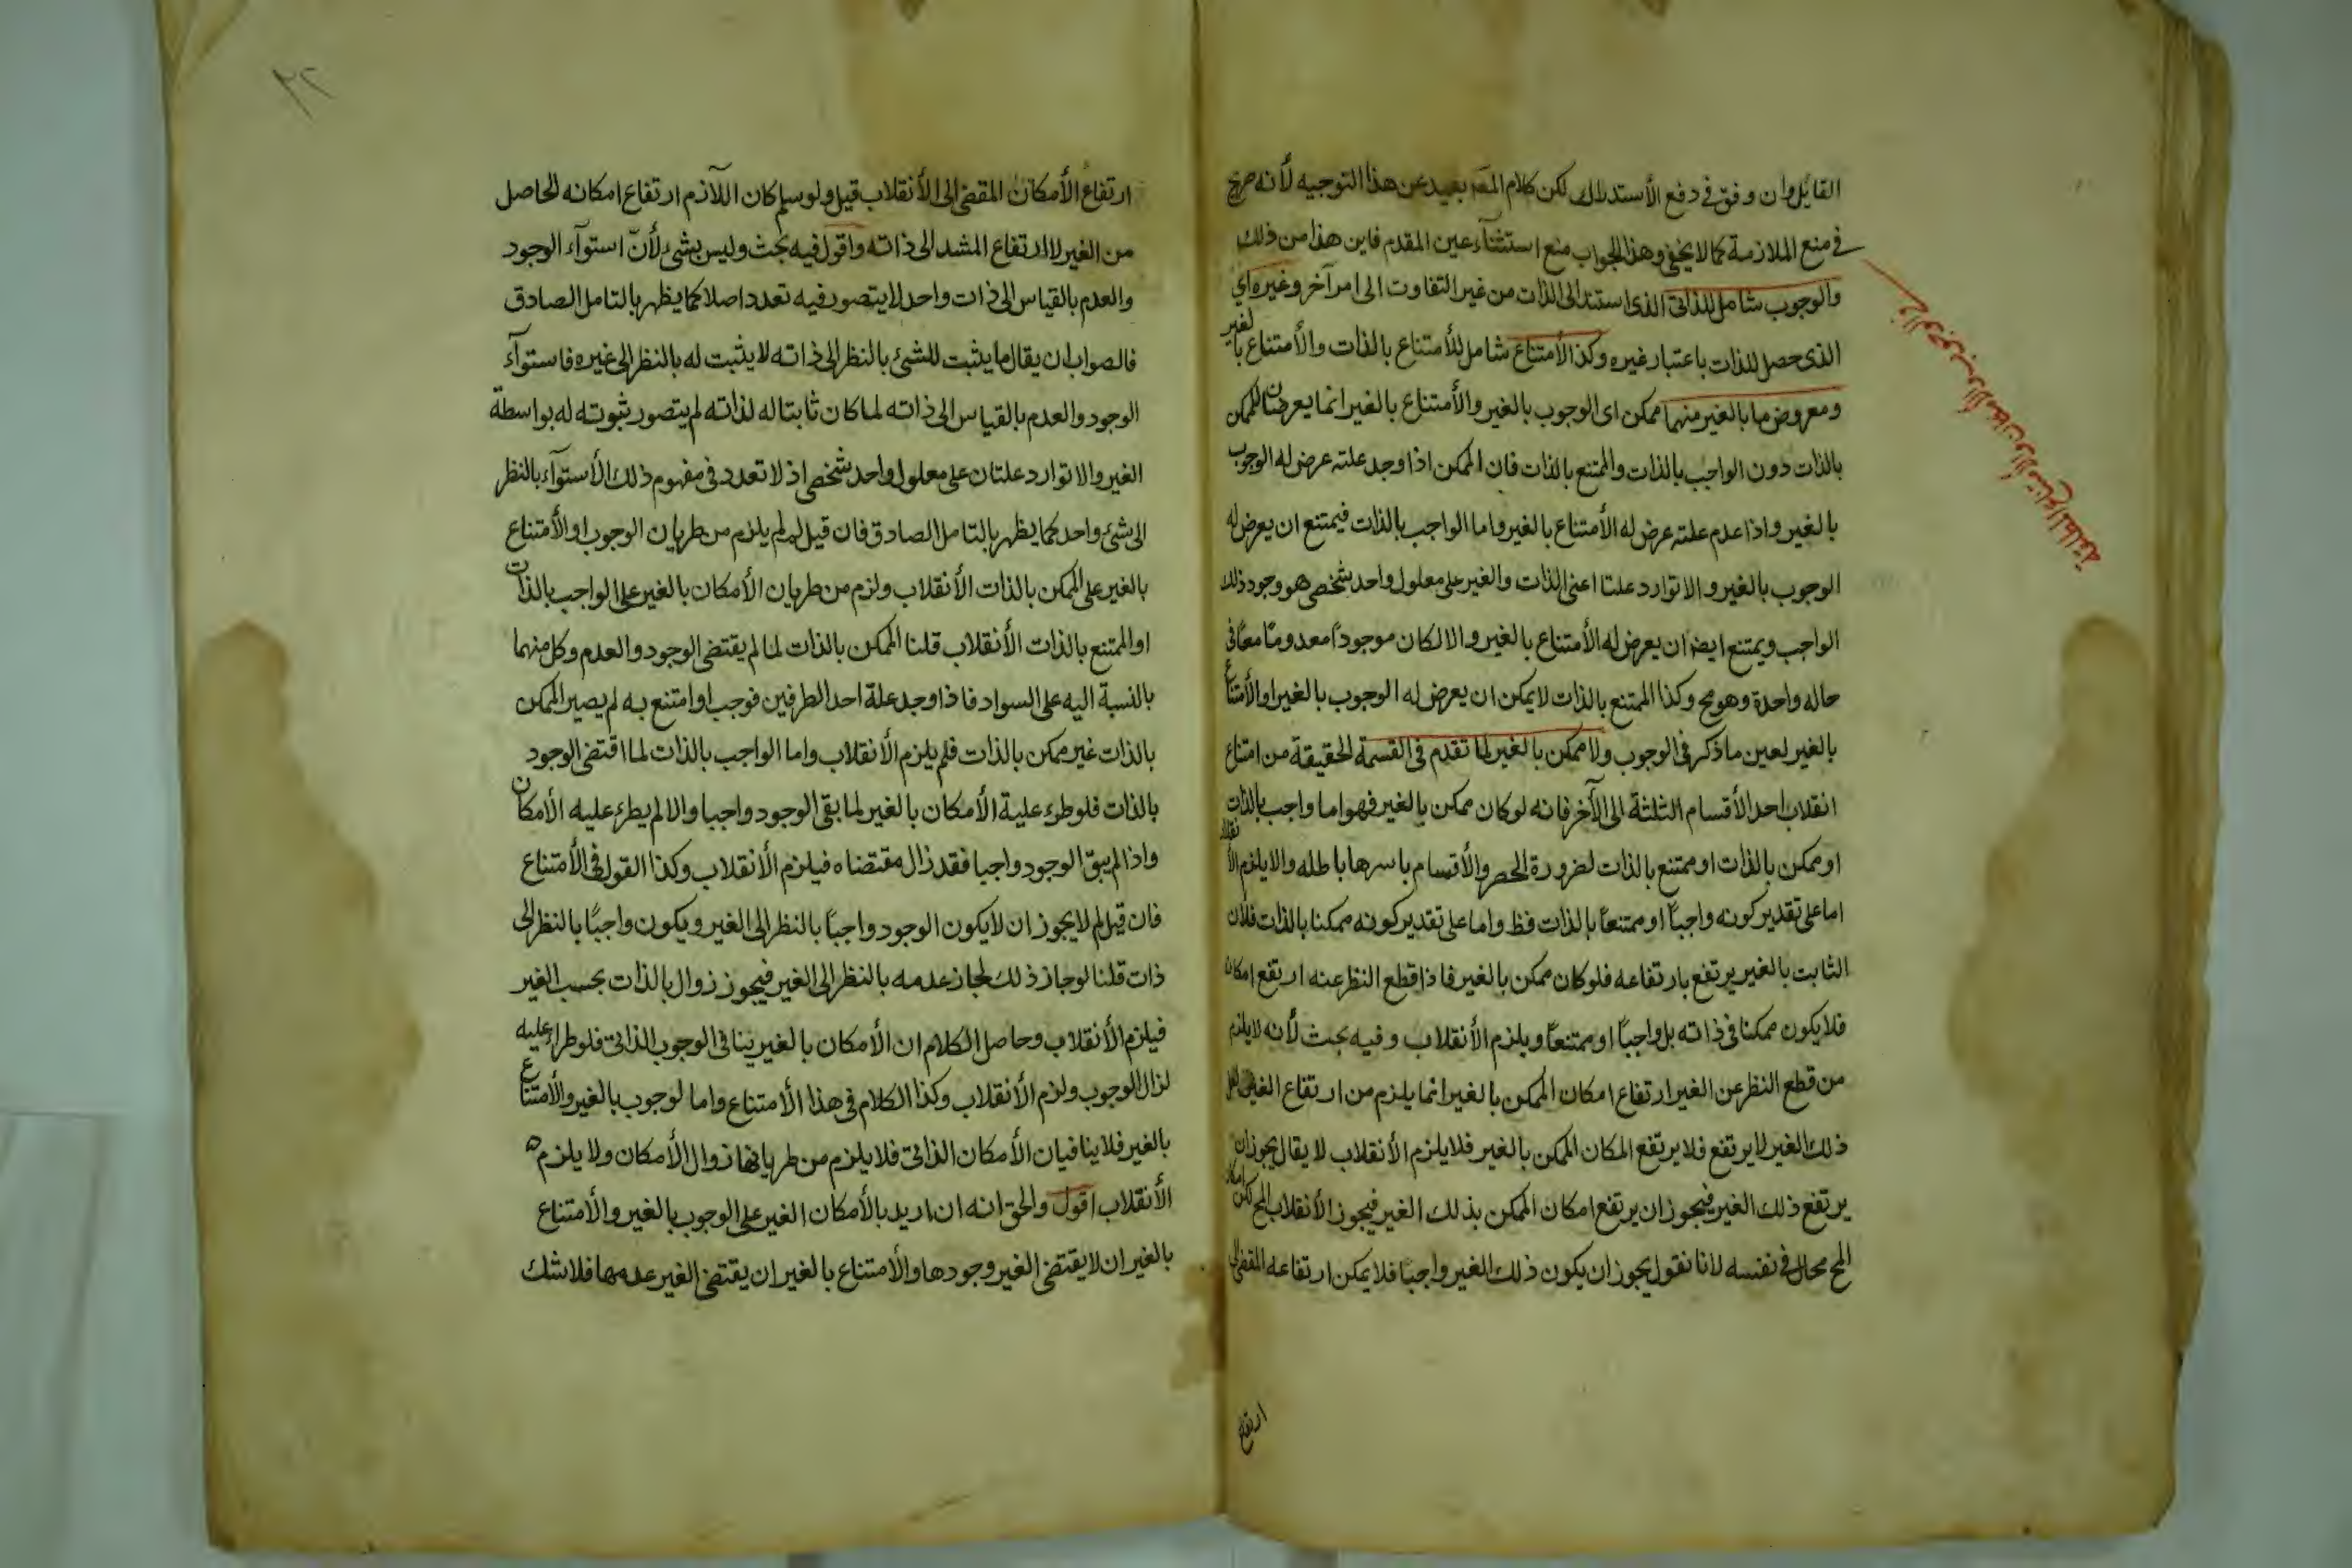 القائل وان وفق فى دفع الأستدلال لكن كلام المصَ بعيد عن هذا التوجيه لأنه صريح
فى منع الملازمة كما لا يخفى وهذا الجواب منع استثنآء عين المقدم فاين هذا من ذلك
والوجوب شامل للذاتى الذى استند الى الذات من غير التفاوت الى امر آخر وغيره اى
الذى حصل للذات باعتبار غيره وكذا الأمتناع شامل للأمتناع بالذات والأمتناع بالغير
ومعروض ما بالغير منهما ممكن اى الوجوب بالغير والأمتناع بالغير انما يعرضان للممكن
بالذات دون الواجب بالذات والممتنع بالذات فان الممكن اذا وجد علته عرض له الوجوب
بالغير واذا عدم علته عرض له الأمتناع بالغير واما الواجب بالذات فيمتنع ان يعرض له
الوجوب بالغير والا توارد علتا اعنى الذات والغير على معلول واحد شخصى هو وجود ذلك
الواجب ويمتنع ايضا ان يعرض له الأمتناع بالغير والا لكان موجودًا معدومًا معًا فى
حاله واحدة وهو مح وكذا الممتنع بالذات لا يمكن ان يعرض له الوجوب بالغير او الأمتناع
بالغير لعين ما ذكر فى الوجوب ولا ممكن بالغير لما تقدم فى القسمة الحقيقة من امتناع
انقلاب احد الأقسام الثلثة الى الآخر فانه لو كان ممكن بالغير فهو اما واجب بالذات
او ممكن بالذات او ممتنع بالذات لضرورة الحصر والأقسام باسرها باطله والا يلزم الأنقلاب
اما على تقدير كونه واجبًا او ممتنعًا بالذات فظ واما على تقدير كونه ممكنا بالذات فلان
الثابت بالغير يرتفع بارتفاعه فلو كان ممكن بالغير فاذا قطع النظر عنه ارتفع امكانه
فلا يكون ممكنا فى ذاته بل واجبًا او ممتنعًا ويلزم الأنقلاب وفيه بحث لأنه لا يلزم
من قطع النظر عن الغير ارتفاع امكان الممكن بالغير انما يلزم من ارتفاع الغير
ذلك الغير لا يرتفع فلا يرتفع المكان الممكن بالغير فلا يلزم الأنقلاب لا يقال يجوز ان
يرتفع ذلك الغير فيجوز ان يرتفع امكان الممكن بذلك الغير فيجوز الأنقلاب المح لكن امكان
المح محال فى نفسه لانا نقول يجوز ان يكون ذلك الغير واجبًا فلا يمكن ارتفاعه المقضى الى
ارتفاع
فى الوجوب والأمكان والأمتناع
ارتفاع الأمكان المقضى الى الأنقلاب قيل ولو سلم كان اللآزم ارتفاع امكانه الحاصل
من الغير لا ارتفاع المشد الى ذاته واقول فيه بحث وليس بشئ لأنّ استوآء الوجود
والعدم بالقياس الى ذات واحد لا يتصور فيه تعدد اصلا كما يظهر بالتامل الصادق
فالصواب ان يقال ما يثبت للشئ بالنظر الى ذاته لا يثبت له بالنظر الى غيره فاستوآء
الوجود والعدم بالقياس الى ذاته لما كان ثابتا له لذاته لم يتصور ثبوته له بواسطة
الغير والا توارد علتان على معلول واحد شخصى اذ لا تعدد فى مفهوم ذلك الأستوآء بالنظر
الى شئ واحد كما يظهر بالتامل الصادق فان قيل لم لم يلزم من طريان الوجوب او الأمتناع
بالغير على الممكن بالذات الأنقلاب ولزم من طريان الأمكان بالغير على الواجب بالذات
او الممتنع بالذات الأنقلاب قلنا الممكن بالذات لما لم يقتضى الوجود والعدم وكل منهما
بالنسبة اليه على السواد فاذا وجد علة احد الطرفين فوجب او امتنع به لم يصير الممكن
بالذات غير ممكن بالذات فلم يلزم الأنقلاب واما الواجب بالذات لما اقتضى الوجود
بالذات فلو طرء علية الأمكان بالغير لما بقى الوجود واجبا والا لم يطرء عليه الأمكان
واذا لم يبق الوجود واجبا فقد زال مقتضاه فيلزم الأنقلاب وكذا القول فى الأمتناع
فان قيل لم لا يجوز ان لا يكون الوجود واجبًا بالنظر الى الغير ويكون واجبًا بالنظر الى
ذات قلنا لو جاز ذلك لجاز عدمه بالنظر الى الغير فيجوز زوال بالذات بحسب الغير
فيلزم الأنقلاب وحاصل الكلام ان الأمكان بالغير ينافى الوجوب الذاتى فلو طراء عليه
لزال الوجوب ولزم الأنقلاب وكذا الكلام فى هذا الأمتناع واما لوجوب بالغير والأمتناع
بالغير فلا ينافيان الأمكان الذاتى فلا يلزم من طريانها زوال الأمكان ولا يلزم
الأنقلاب اقول والحق انه ان اريد بالأمكان الغير على الوجوب بالغير والأمتناع
بالغير ان لا يقتضى الغير وجودها والأمتناع بالغير ان يقتضى الغير عدمها فلا شك